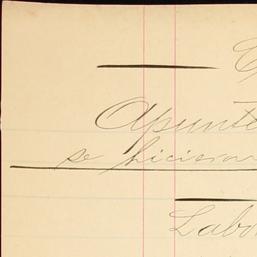 Apunte
se hicieron
Labo